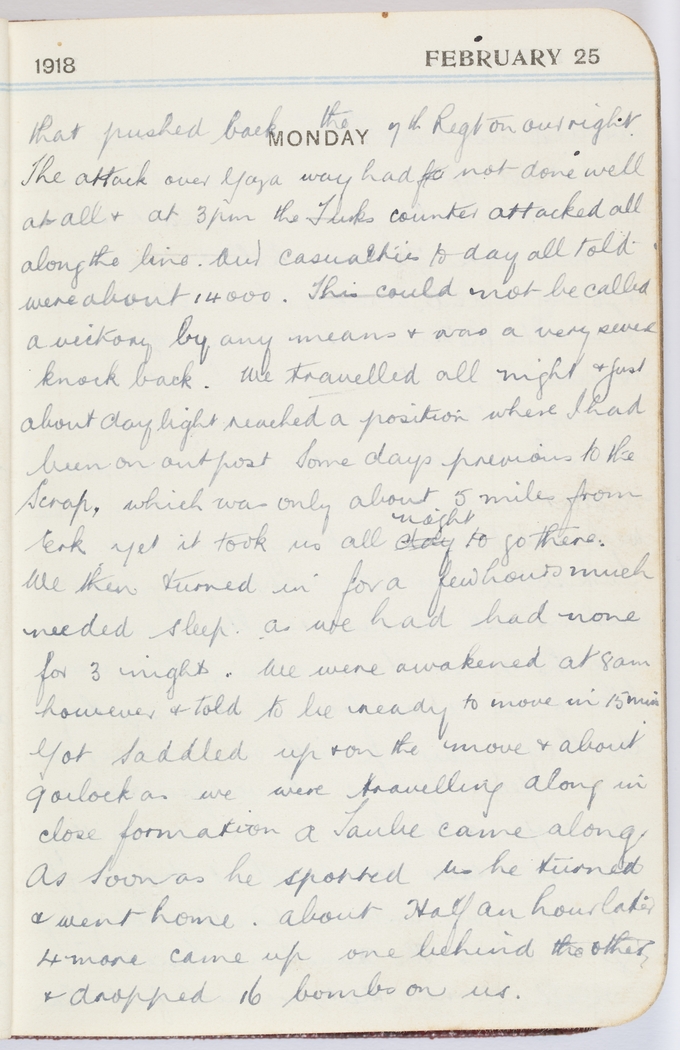 1918 FEBRUARY 25
MONDAY
that pushed back the 7th Regt on our right.
The attack over Gaza way had not done well
at all & at 3pm the Turks counter attacked all
along the line. Our casualties to day all told
were about 14000. This could not be called
a victory by any means & was a very severe
knock back. We travelled all night & just
about daylight reached a position where I had
been on outpost some days previous to the
Scrap, which was only about 5 miles from
Erk yet it took us all day night to go there.
We then turned in for a few hours much
needed sleep. as we had had none
for 3 nights. We were awakened at 8am
however & told to be ready to move in 15 min
Got saddled up & on the move & about
9 oclock as we were travelling along in
close formation a Taube came along,
As soon as he spotted us he turned
& went home. about Half an hour later
4 more came up one behind the other,
& dropped 16 bombs on us.